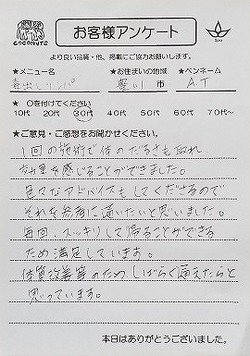 COCONUTS
お客様アンケート
Spa
より良い品質・他、掲載にご協力お願いします。
★メニュー名 ★お住まいの地域 ★ペンネーム
毒出しリンパ 市 A.T
★ 〇を付けてください
10代 20代 30代 40代 50代 60代 70代〜
★ご意見・ご感想をお聞かせください。
1回の施術で体のだるさも取れ
効果を感じることができました。
色々なアドバイスもしてくださるので
それを参考に通いたいと思いました。
毎回、スッキリして帰ることができる
ため満足しています。
体質改善のためしばらく通えたらと
思っています。
本日はありがとうございました。